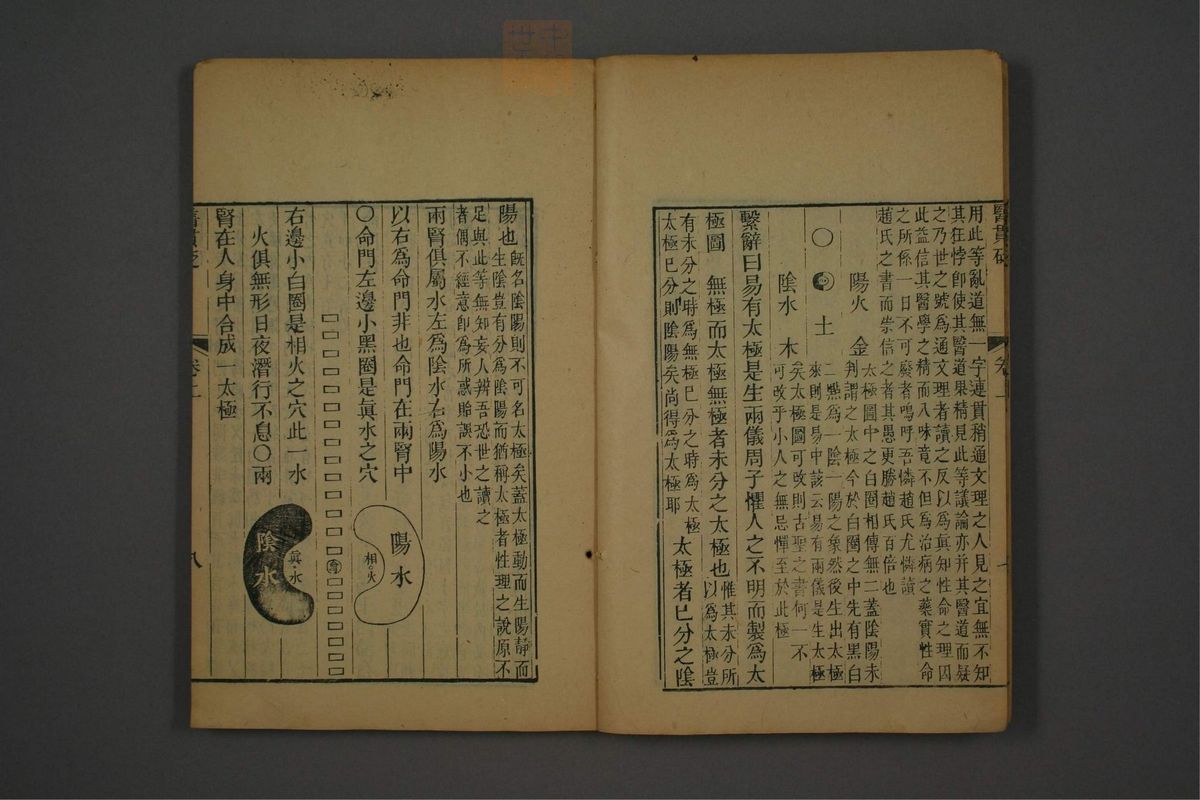 醫貫砭
卷上
用此等亂道無一字連貫稍通文理之人見之宜無不知
其狂悖卽使其醫道果精見此等議論亦并其醫道而疑
之乃世之號爲通文理者讀之反以爲眞知性命之理因
此益信其醫學之精而八味竟不但爲治病之藥實性命
之所係一日不可廢者嗚呼吾憐趙氏尤憐讀
趙氏之書而崇信之者其愚更勝趙氏百倍也
陽火 金
太極圖中之白圈相傳無二蓋陰陽未
判謂之太極今於白圈之中先有黑白
〇 土
二㸃爲一陰一陽之象然後生出太極
來則是易中該云易有兩儀是生太極
陰水 木
矣太極圖可改則古聖之書何一不
可改乎小人之無忌憚至於此極
繫辭曰易有太極是生兩儀周子懼人之不明而製爲太
極圖 無極而太極無極者未分之太極也
惟其未分所
以爲太極豈
有未分之時爲無極已分之時爲太極
太極已分則陰陽矣尚得爲太極耶
太極者已分之陰
陽也
旣名陰陽則不可名太極矣蓋太極動而生陽靜而
生陰豈有分爲陰陽而猶稱太極者性理之說原不
足與此等無知妄人辨吾恐世之讀之
者偶不經意卽爲所惑貽誤不小也
兩腎俱屬水左爲陰水右爲陽水
以右爲命門非也命門在兩腎中
〇命門左邊小黑圈是眞水之穴
陽水
相火
命
右邊小白圈是相火之穴此一水
火俱無形日夜潛行不息〇兩
眞水
陰水
腎在人身中合成一太極
醫貫砭
卷上
八